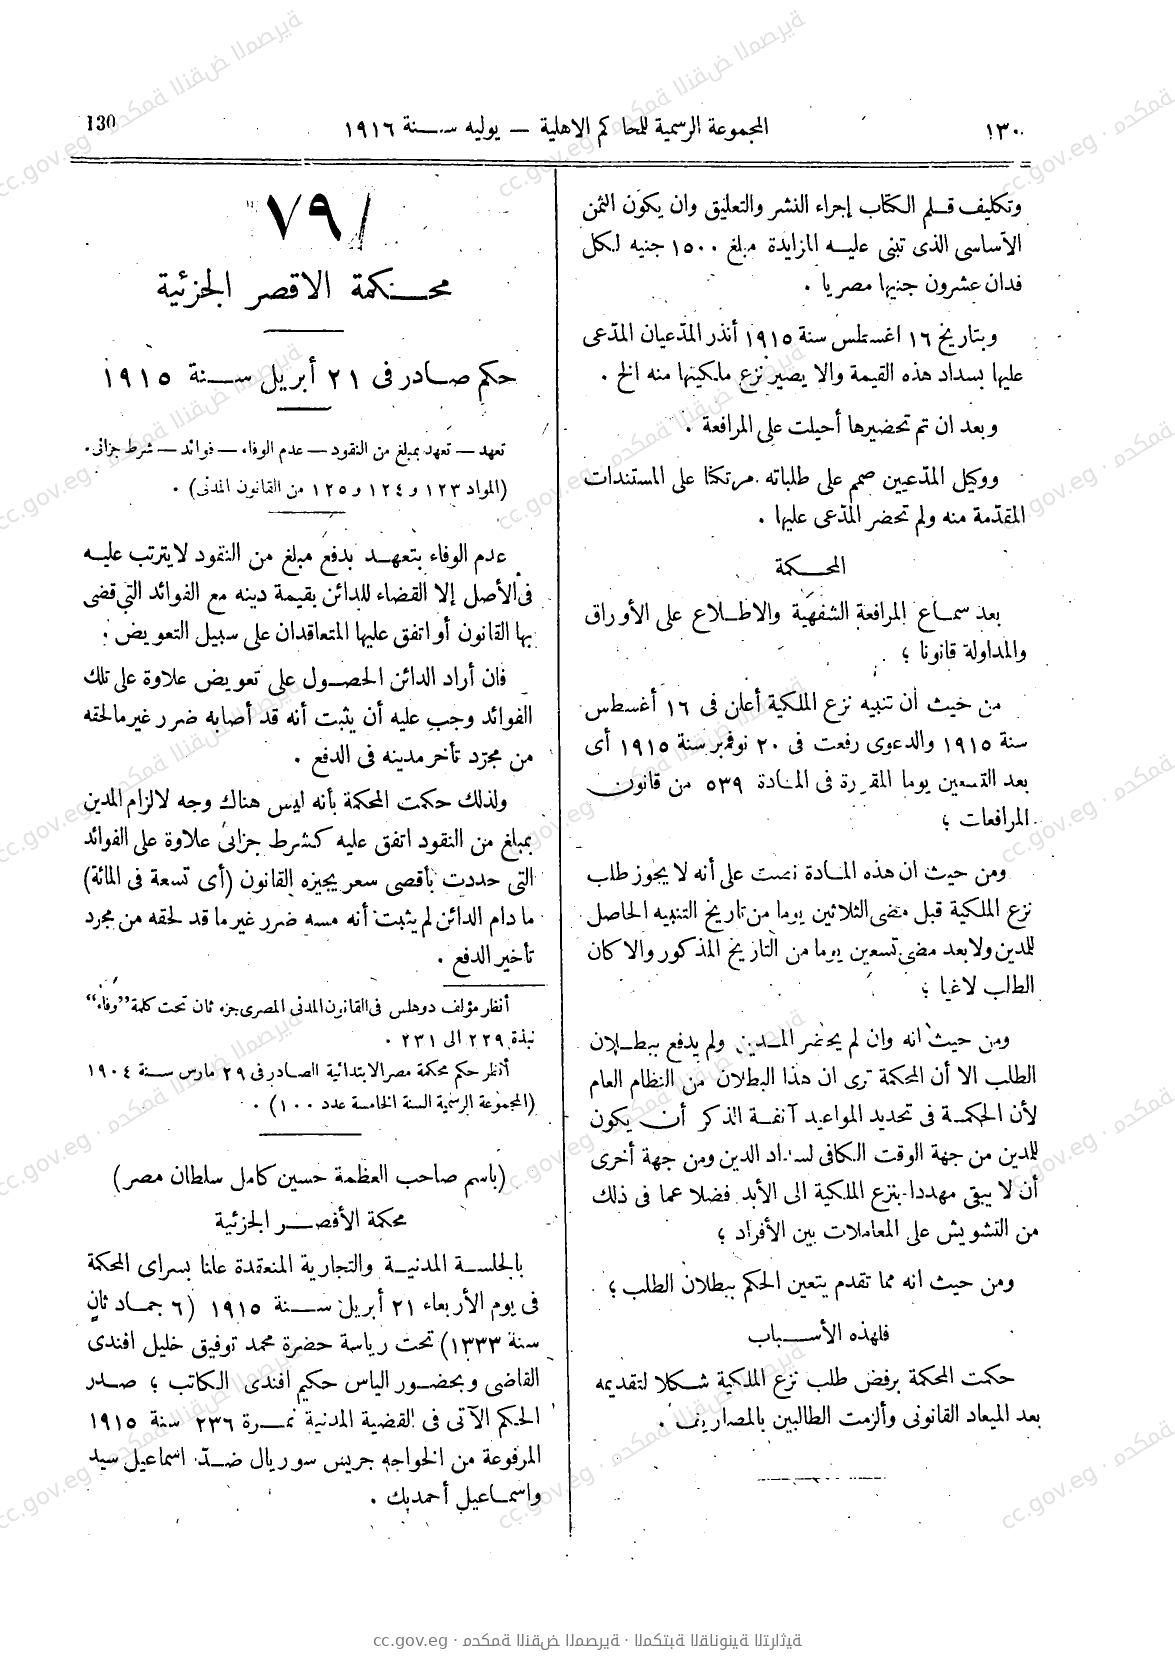 ١٣٠ المجموعة الرسمية للمحاكم الاهلية — يوليه سنة ١٩١٦ 130
وتكليف قلم الكتاب إجراء النشر والتعليق وان يكون الثمن
الأساسى الذى تبنى عليه المزايدة مبلغ ١٥٠٠ جنيه لكل
فدان عشرون جنيها مصريا .
وبتاريخ ١٦ اغسطس سنة ١٩١٥ أنذر المدّعيان المدّعى
عليها بسداد هذه القيمة والا يصير نزع ملكيتها منه الخ .
وبعد ان تم تحضيرها أحيلت على المرافعة .
ووكيل المدّعيين صمم على طلباته مرتكنا على المستندات
المقدّمة منه ولم تحضر المدّعى عليها .
المحكمة
بعد سماع المرافعة الشفهية والاطلاع على الأوراق
والمداولة قانونا ؛
من حيث أن تنبيه نزع الملكية أعلن فى ١٦ أغسطس
سنة ١٩١٥ والدعوى رفعت فى ٢٠ نوفمبر سنة ١٩١٥ أى
بعد التسعين يوما المقررة فى المادة ٥٣٩ من قانون
المرافعات ؛
ومن حيث ان هذه المادة نصت على أنه لا يجوز طلب
نزع الملكية قبل مضى الثلاثين يوما من تاريخ التنبيه الحاصل
للمدين ولا بعد مضى تسعين يوما من التاريخ المذكور والا كان
الطلب لاغيا ؛
ومن حيث انه وان لم يحضر المدين ولم يدفع ببطلان
الطلب الا أن المحكمة ترى ان هذا البطلان من النظام العام
لأن الحكمة فى تحديد المواعيد آنفة الذكر أن يكون
للمدين من جهة الوقت الكافى لسداد الدين ومن جهة أخرى
أن لا يبقى مهددا بنزع الملكية الى الأبد فضلا عما فى ذلك
من التشويش على المعاملات بين الأفراد ؛
ومن حيث انه مما تقدم يتعين الحكم ببطلان الطلب ؛
فلهذه الأسباب
حكمت المحكمة برفض طلب نزع الملكية شكلا لتقديمه
بعد الميعاد القانونى وألزمت الطالبين بالمصاريف .
٧٩
محكمة الاقصر الجزئية
حكم صادر فى ٢١ أبريل سنة ١٩١٥
تعهد — تعهد بمبلغ من النقود — عدم الوفاء — فوائد — شرط جزائى .
(المواد ١٢٣ و ١٢٤ و ١٢٥ من القانون المدنى) .
عدم الوفاء بتعهد بدفع مبلغ من النقود لا يترتب عليه
فى الأصل إلا القضاء للدائن بقيمة دينه مع الفوائد التى قضى
بها القانون أو اتفق عليها المتعاقدان على سبيل التعويض .
فان أراد الدائن الحصول على تعويض علاوة على تلك
الفوائد وجب عليه أن يثبت أنه قد أصابه ضرر غير ما لحقه
من مجرّد تأخر مدينه فى الدفع .
ولذلك حكمت المحكمة بأنه ليس هناك وجه لالزام المدين
بمبلغ من النقود اتفق عليه كشرط جزائى علاوة على الفوائد
التى حددت بأقصى سعر يجيزه القانون (أى تسعة فى المائة)
ما دام الدائن لم يثبت أنه مسه ضرر غير ما قد لحقه من مجرد
تأخير الدفع .
أنظر مؤلف دوهلس فى القانون المدنى المصرى جزء ثان تحت كلمة "وفاء"
نبذة ٢٢٩ الى ٢٣١ .
أنظر حكم محكمة مصر الابتدائية الصادر فى ٢٩ مارس سنة ١٩٠٤
(المجموعة الرسمية السنة الخامسة عدد ١٠٠) .
(باسم صاحب العظمة حسين كامل سلطان مصر)
محكمة الأقصر الجزئية
بالجلسة المدنية والتجارية المنعقدة علنا بسراى المحكمة
فى يوم الأربعاء ٢١ أبريل سنة ١٩١٥ (٦ جماد ثان
سنة ١٣٣٣) تحت رياسة حضرة محمد توفيق خليل افندى
القاضى وبحضور الياس حكيم افندى الكاتب ؛ صدر
الحكم الآتى فى القضية المدنية نمرة ٢٣٦ سنة ١٩١٥
المرفوعة من الخواجه جريس سوريال ضدّ اسماعيل سيد
واسماعيل أحمد بك .
cc.gov.eg · محكمة النقض المصرية · المكتبة القانونية التراثية